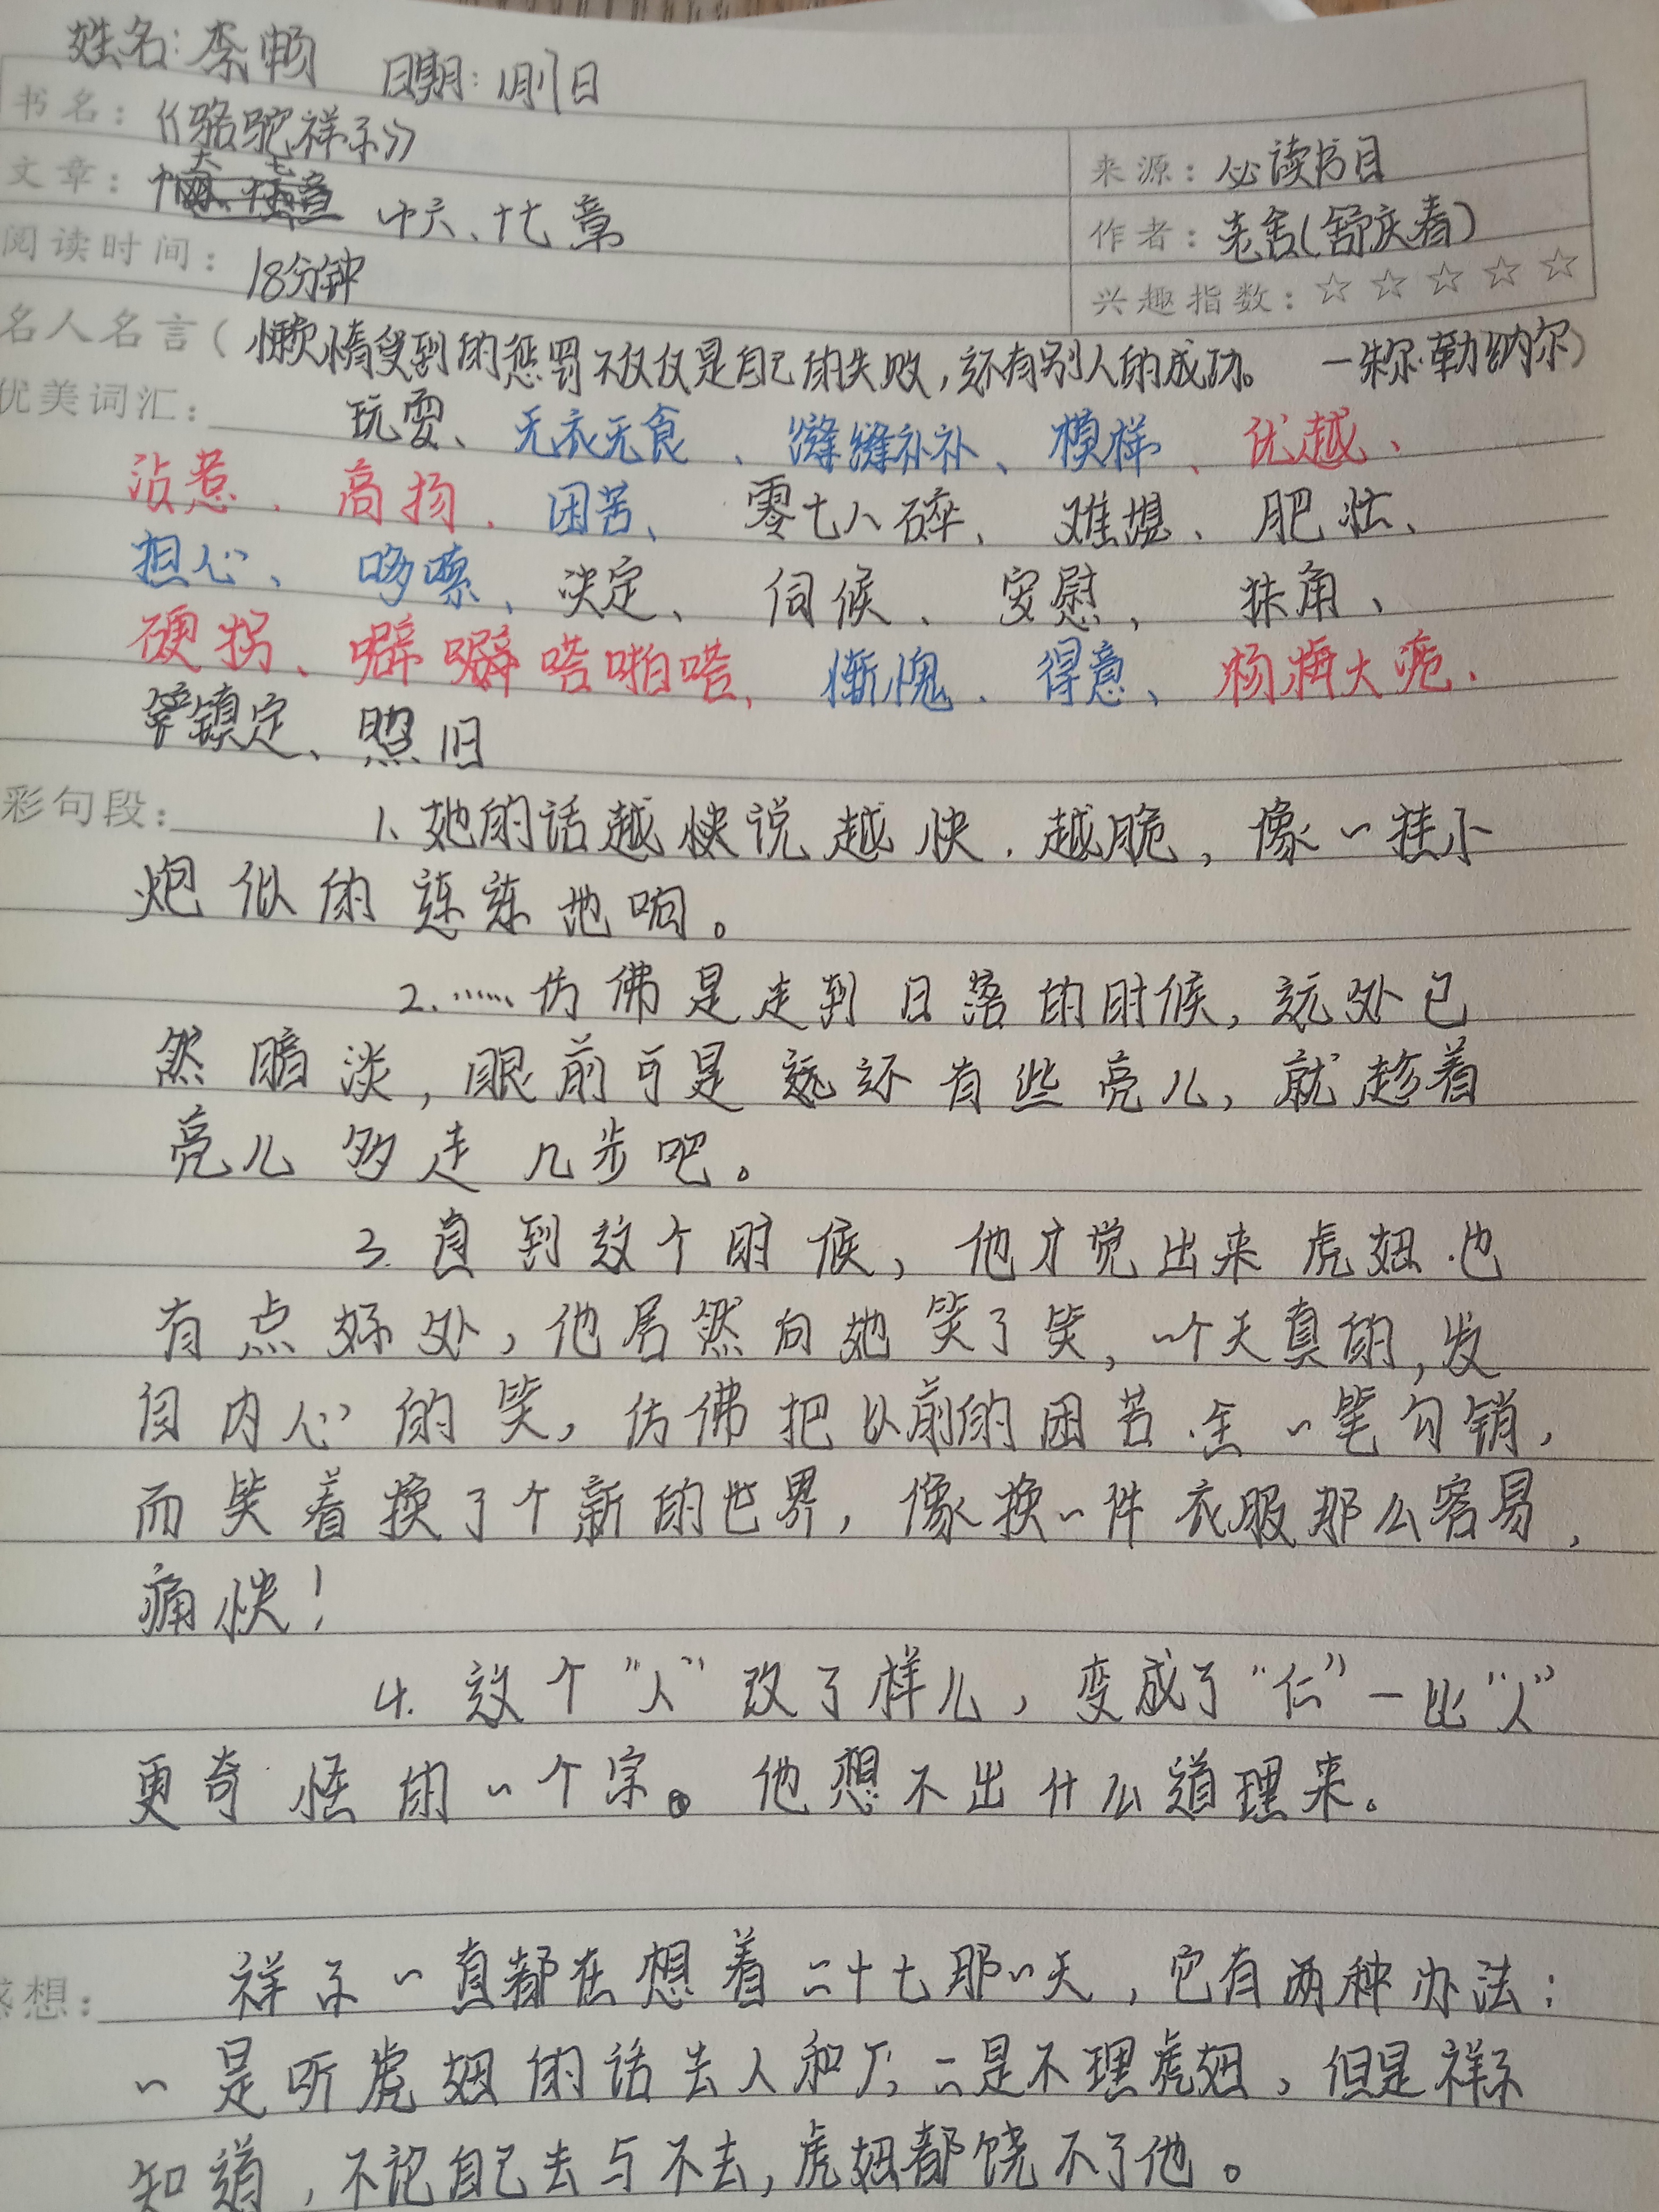 姓名：李畅 日期：1月1日
书名：《骆驼祥子》
来源：必读书目
文章： 十六、十七章
作者：老舍（舒庆春）
阅读时间：18分钟
兴趣指数：☆☆☆☆☆
名人名言（懒惰受到的惩罚不仅仅是自己的失败，还有别人的成功。一朱尔·勒纳尔）
优美词汇： 玩耍、无衣无食、缝缝补补、模样、优越、
沾惹、高扬、困苦、零七八碎、难堪、肥壮、
担心、哆嗦、决定、伺候、安慰，抹角、
硬拐、噼噼嗒啪嗒、惭愧、得意、杨梅大疮、
镇定、照旧
彩句段： 1、她的话越快说越快，越脆，像一挂小
炮似的连连地响。
2.……仿佛是走到日落的时候，远处已
然暗淡，眼前可是还有些亮儿，就趁着
亮儿多走几步吧。
3.直到这个时候，他才觉出来虎妞也
有点好处，他居然向她笑了笑，一个天真的，发
自内心的笑，仿佛把以前的困苦全一笔勾销，
而笑着换了个新的世界，像换一件衣服那么容易，
痛快！
4.这个“人”改了样儿，变成了“仁”一比“人”
更奇怪的一个字。他想不出什么道理来。
感想： 祥子一直都在想着二十七那一天，它有两种办法：
一是听虎妞的话去人和厂；二是不理虎妞，但是祥子
知道，不论自己去与不去，虎妞都饶不了他。